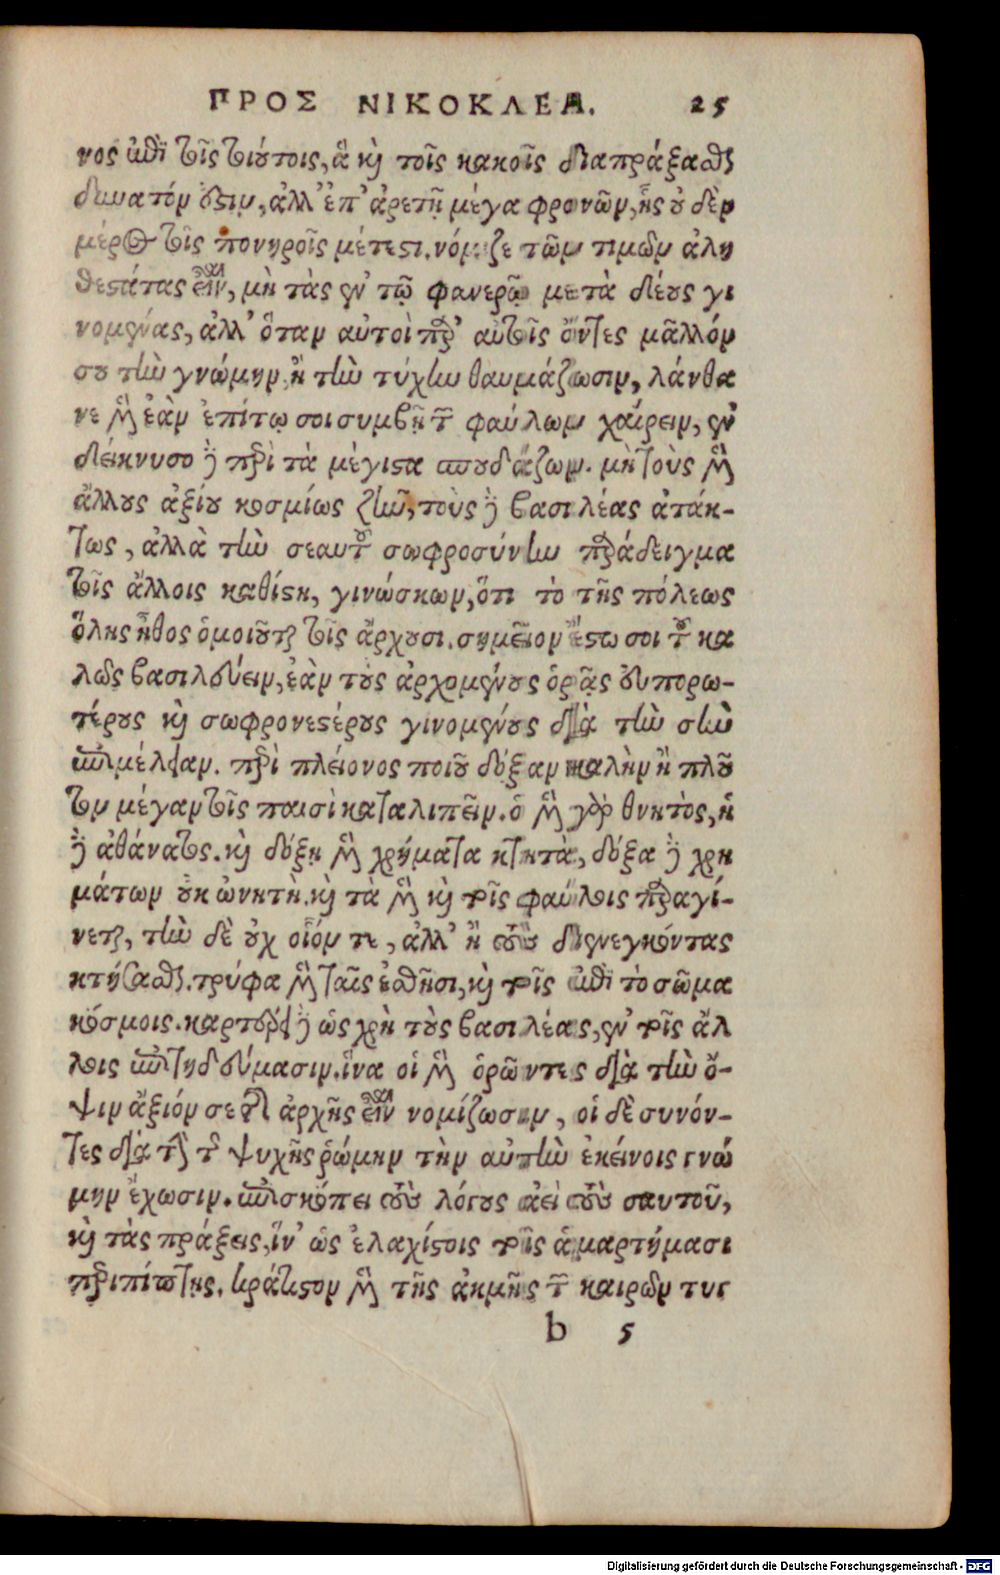 ΠΡΟΣ ΝΙΚΟΚΛΕΑ. 25
νος ἐπὶ τοῖς τοιούτοις, ἃ καὶ τοῖς κακοῖς διαπράξασθαι
δυνατόν ἐστιν, ἀλλ' ἐπ' ἀρετῇ μέγα φρονῶν, ἧς οὐδὲν
μέρος τοῖς πονηροῖς μέτεστι. νόμιζε τῶν τιμῶν ἀλη
θεστάτας εἶναι, μὴ τὰς ἐν τῷ φανερῷ μετὰ δέους γι
νομένας, ἀλλ' ὅταν αὐτοὶ παρ' αὑτοῖς ὄντες μᾶλλόν
σου τὴν γνώμην ἢ τὴν τύχην θαυμάζωσιν, λάνθα
νε μὲν ἐὰν ἐπί τῳ σοι συμβῇ τῶν φαύλων χαίρειν, ἐν
δείκνυσο δὲ περὶ τὰ μέγιστα σπουδάζων. μὴ τοὺς μὲν
ἄλλους ἀξίου κοσμίως ζῆν, τοὺς δὲ βασιλέας ἀτάκ-
τως, ἀλλὰ τὴν σεαυτοῦ σωφροσύνην παράδειγμα
τοῖς ἄλλοις καθίστη, γινώσκων, ὅτι τὸ τῆς πόλεως
ὅλης ἦθος ὁμοιοῦται τοῖς ἄρχουσι. σημεῖον ἔστω σοι τοῦ κα
λῶς βασιλεύειν, ἐὰν τοὺς ἀρχομένους ὁρᾷς εὐπορω-
τέρους καὶ σωφρονεστέρους γινομένους διὰ τὴν σὴν
ἐπιμέλειαν. περὶ πλείονος ποιοῦ δόξαν καλὴν ἢ πλοῦ
τον μέγαν τοῖς παισὶ καταλιπεῖν. ὁ μὲν γὰρ θνητὸς, ἡ
δὲ ἀθάνατος. καὶ δόξῃ μὲν χρήματα κτητὰ, δόξα δὲ χρη
μάτων οὐκ ὠνητὴ. καὶ τὰ μὲν καὶ τοῖς φαύλοις παραγί-
νεται, τὴν δὲ οὐχ οἷόν τε, ἀλλ' ἢ τοὺς διενεγκόντας
κτήσασθαι. τρύφα μὲν ταῖς ἐσθῆσι, καὶ τοῖς ἐπὶ τὸ σῶμα
κόσμοις. καρτέρει δὲ ὡς χρὴ τοὺς βασιλέας, ἐν τοῖς ἄλ
λοις ἐπιτηδεύμασιν. ἵνα οἱ μὲν ὁρῶντες διὰ τὴν ὄ-
ψιν ἄξιόν σε τῆς ἀρχῆς εἶναι νομίζωσιν, οἱ δὲ συνόν-
τες διὰ τὴν τῆς ψυχῆς ῥώμην τὴν αὐτὴν ἐκείνοις γνώ
μην ἔχωσιν. ἐπισκόπει τοὺς λόγους ἀεὶ τοὺς σαυτοῦ,
καὶ τὰς πράξεις, ἵν' ὡς ἐλαχίστοις τοῖς ἁμαρτήμασι
περιπίπτῃς. κράτιστον μὲν τῆς ἀκμῆς τῶν καιρῶν τυγ
b 5
Digitalisierung gefördert durch die Deutsche Forschungsgemeinschaft - DFG